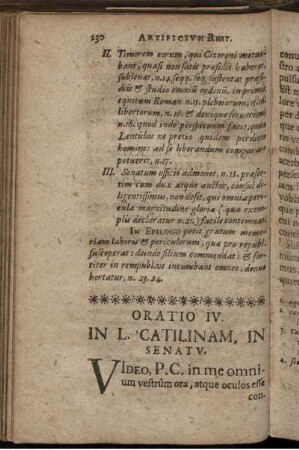 230 ARTIFICIUM RHET.
II. Timorem eorum, qui Ciceroni metue-
bant, quasi non satis præsidii haberet,
sublevat, n.14. seqq. seq. sustentat præsi-
diis & studio omniũ ordinũ, in primis
equitum Roman n.15. plebeiorum,
libertorum, n.16. & denique servorum
n.16. quod inde perspicuum facit, quia
Lentulus ne pretio quidem perditos
homines ad se liberandum comparare
potuerit, n.17.
III. Senatum officii admonet, n. 18. præser-
tim cum dux atque auctor, consul di-
ligentissimus, non desit, qui omnia peri-
cula magnitudine gloriæ (quæ exem-
plis declaratur n.21.) facile contemnat.
IN EPILOGO petit gratum memo-
riam laboris & periculorum, quæ pro republ.
susceperat: deinde filium commendat; & for-
titer in rempublicã incumbant omnes, denuo
hortatur, n. 23. 24.
ORATIO IV.
IN L. CATILINAM, IN
SENATV.
VIDEO, P.C. in me omni-
um vestrûm ora, atque oculos esse
con-